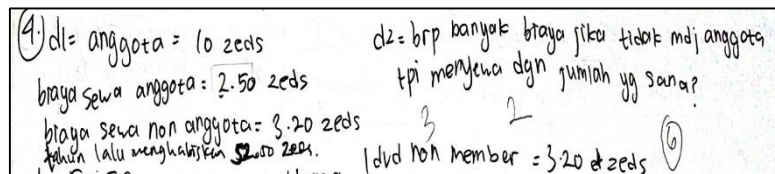 4. d1 = anggota = 10 zeds
biaya sewa anggota = 2.50 zeds
biaya sewa non anggota = 3.20 zeds
tahun lalu menghabiskan 52.50 zeds.
d2 = brp banyak biaya jika tidak mdj anggota
tpi menyewa dgn jumlah yg sama?
3 2
1 dvd non member = 3.20 zeds
6